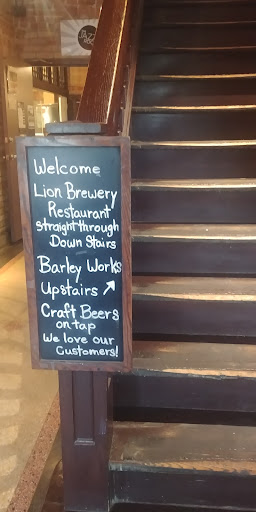 Welcome
Lion Brewery
Restaurant
straight through
Down Stairs
Barley Works
Upstairs ↗
Craft Beers
on tap
We love our
Customers!